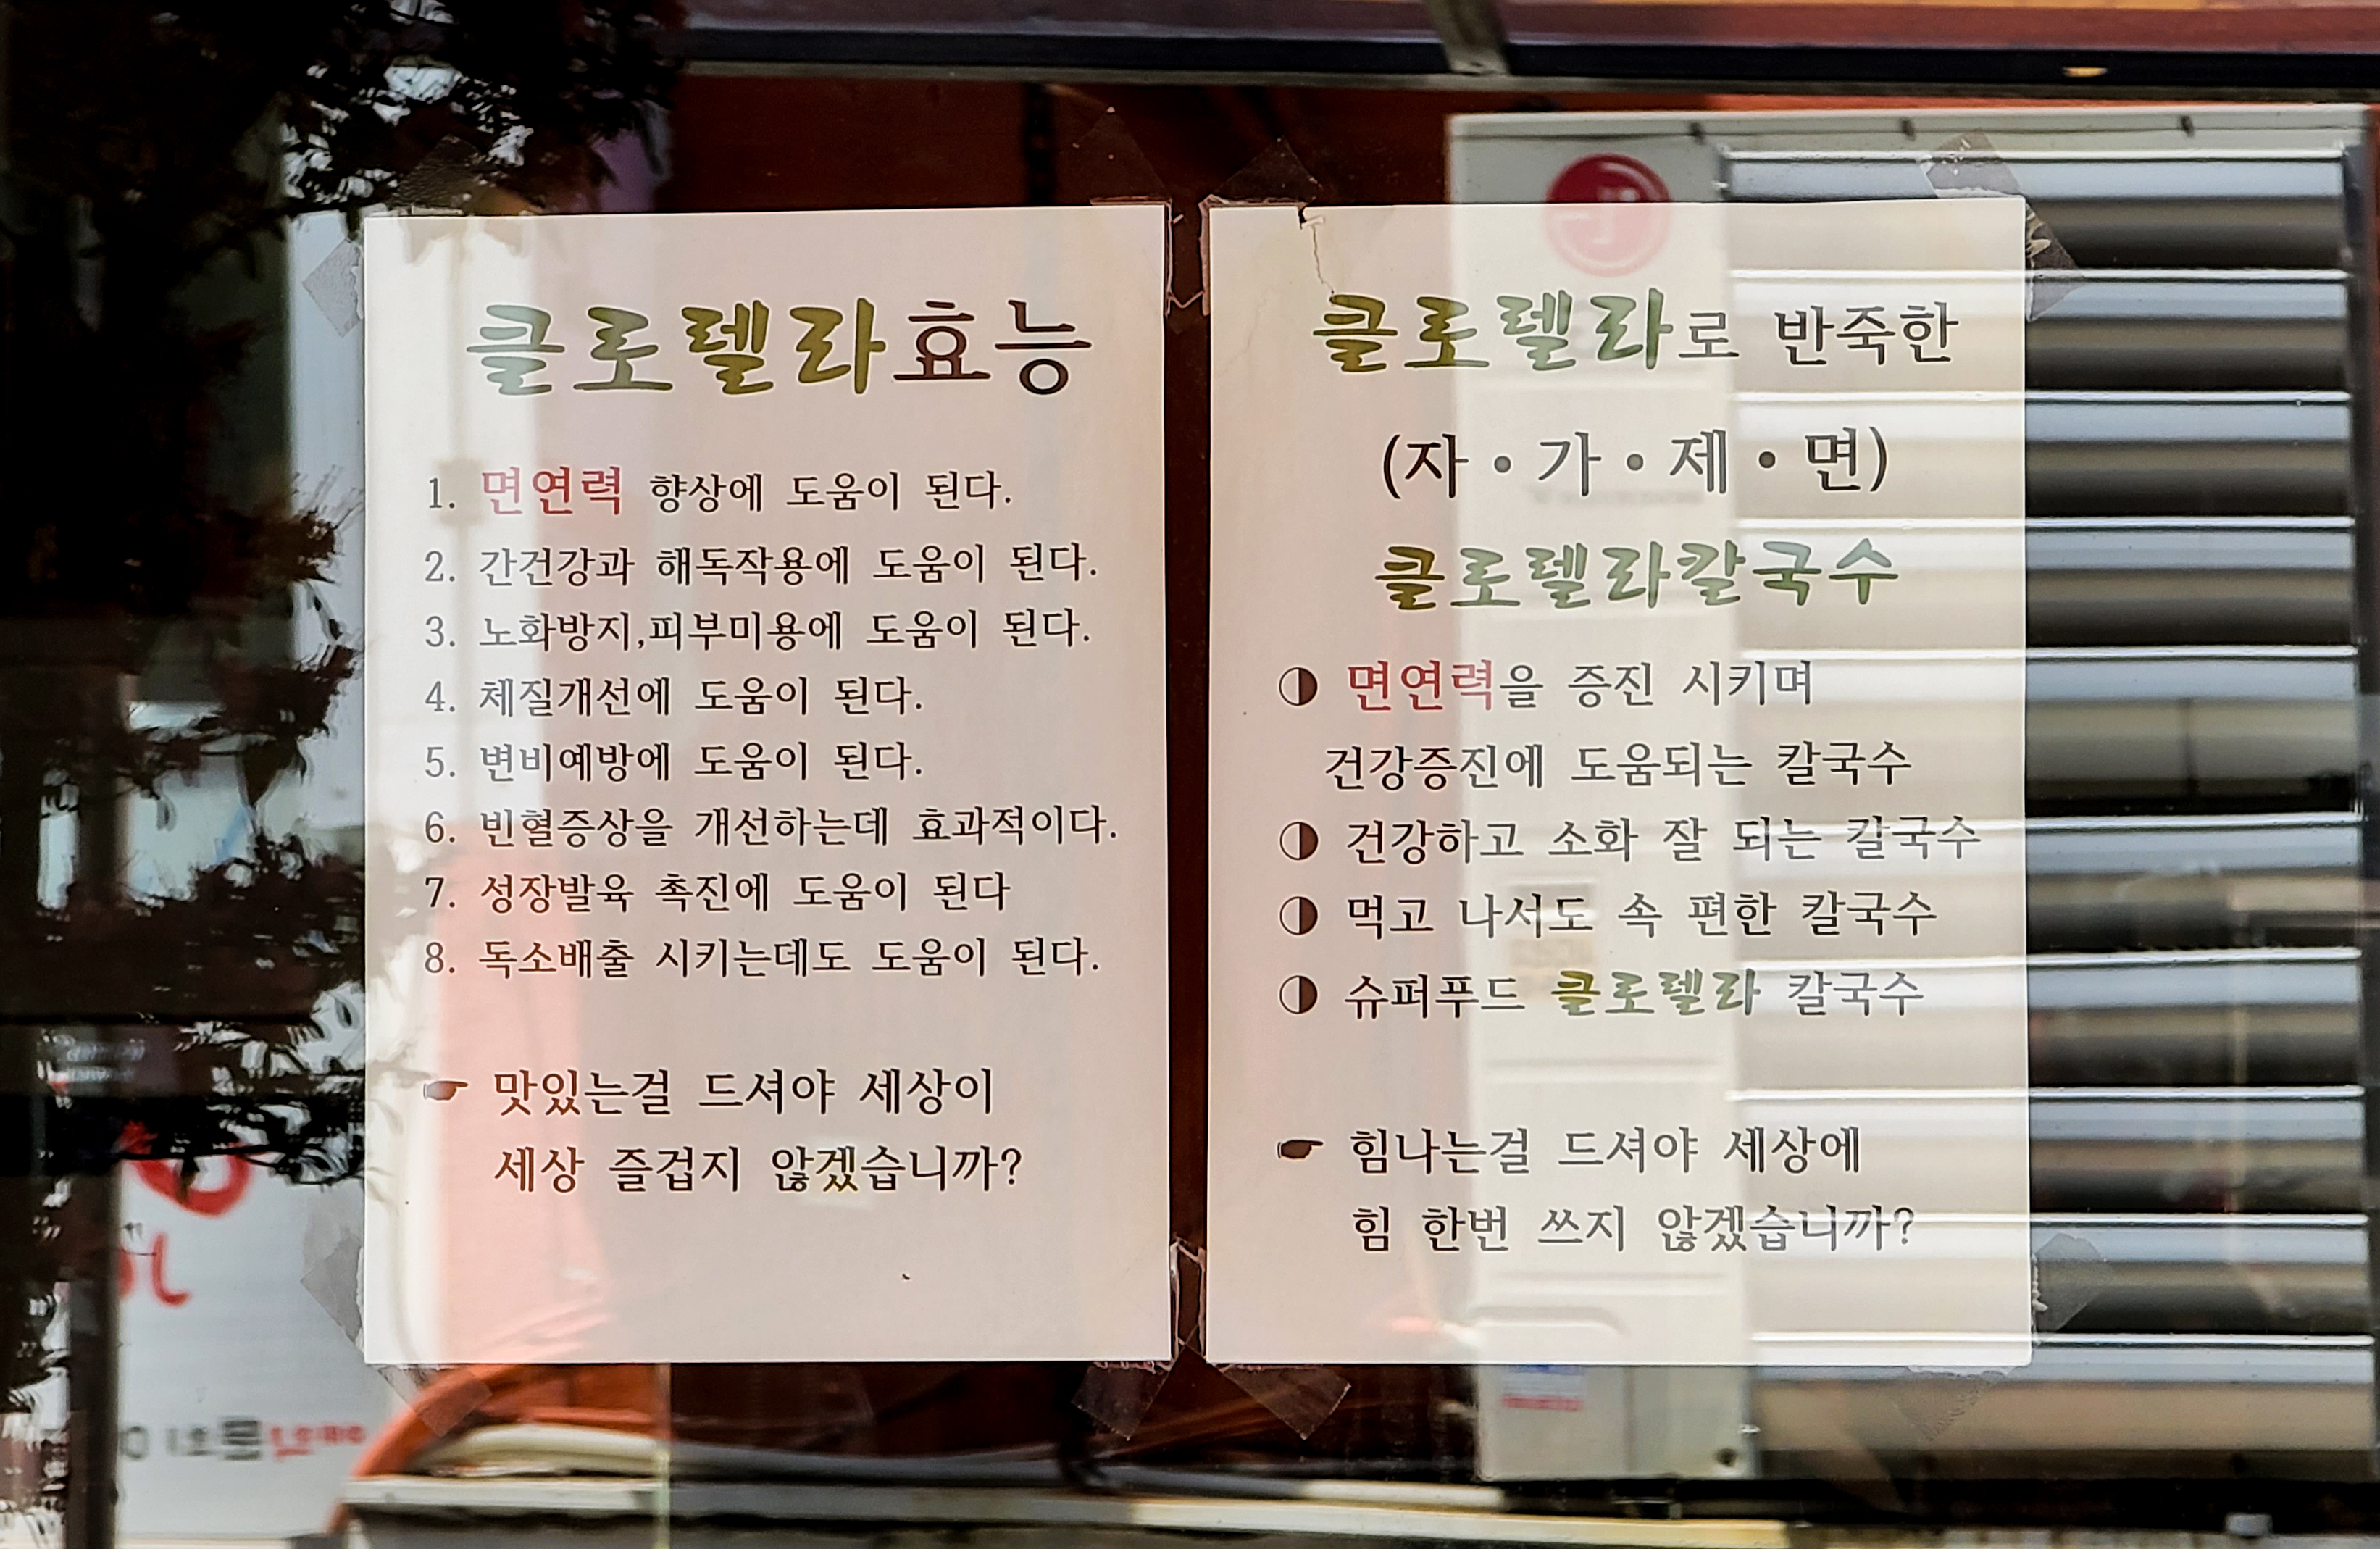 클로렐라효능
1. 면연력 향상에 도움이 된다.
2. 간건강과 해독작용에 도움이 된다.
3. 노화방지,피부미용에 도움이 된다.
4. 체질개선에 도움이 된다.
5. 변비예방에 도움이 된다.
6. 빈혈증상을 개선하는데 효과적이다.
7. 성장발육 촉진에 도움이 된다
8. 독소배출 시키는데도 도움이 된다.
☛ 맛있는걸 드셔야 세상이
세상 즐겁지 않겠습니까?
클로렐라로 반죽한
(자・가・제・면)
클로렐라칼국수
◑ 면연력을 증진 시키며
건강증진에 도움되는 칼국수
◑ 건강하고 소화 잘 되는 칼국수
◑ 먹고 나서도 속 편한 칼국수
◑ 슈퍼푸드 클로렐라 칼국수
☛ 힘나는걸 드셔야 세상에
힘 한번 쓰지 않겠습니까?